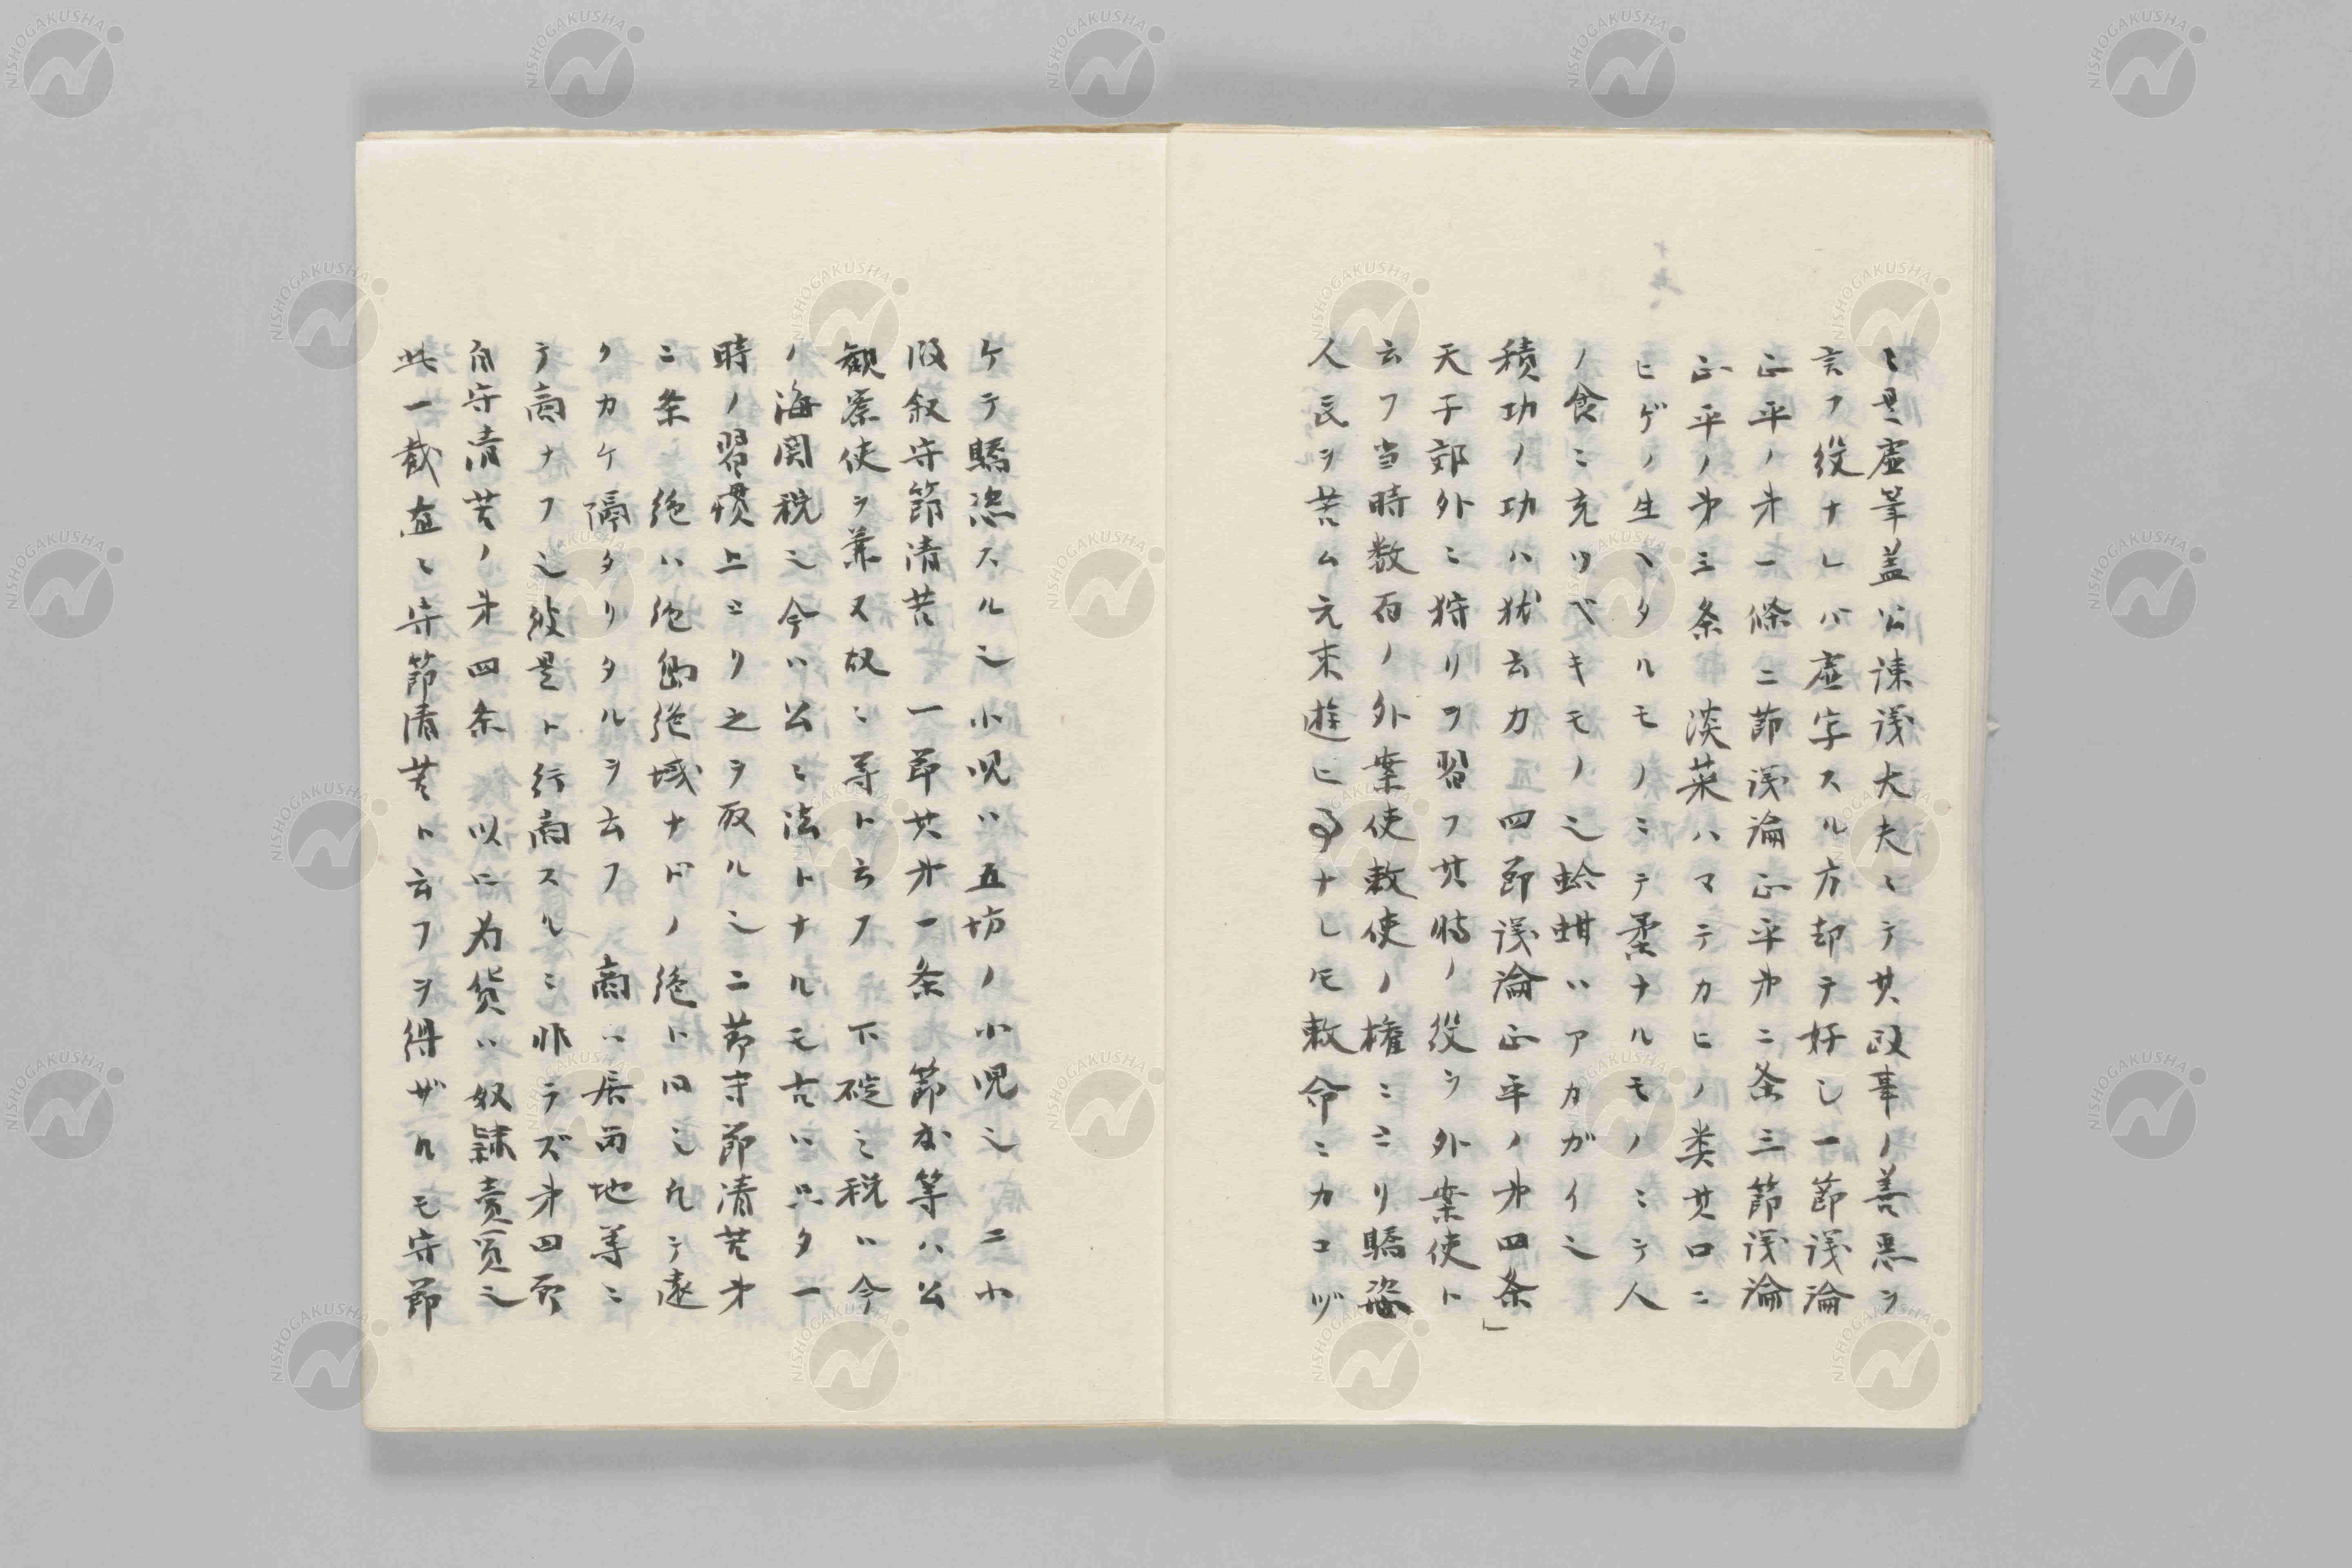 ミ是虚筆盖公諌议大夫ミテ其政事ノ善悪ヲ
言フ役ナレバ虚字スル方却テ好シ一節议論
正平ノ才一條ニ節议論正平才ニ条三節议論
正平ノ才三条 淡菜ハマテカヒノ类其口ニ
ヒゲノ生ヘタルモノミテ柔ナルモノミテ人
ノ食ミ充ツベキモノ之蛤蚶ハアカガイ之
積功ノ功ハ犹云力 四節议論正平ノ才四条」
天子郊外ミ狩リヲ習フ其時ノ役ヲ外案使ト
云フ当時数百ノ外案使敕使ノ權ミヨリ驕恣
人民ヲ苦ム元来遊ヒ事ナレ𪜈敕命ミカコヅ
ケテ驕恣スル之小児ハ五坊ノ小児之 ニ小
段叙守節清苦 一節其才一条 節度等ハ公
観察使ヲ兼ヌ故ミ等ト云フ 下碇ミ税ハ今
ノ海関税之今ハ公ミ法トナルモ古ハ只タ一
時ノ習慣上ヨリ之ヲ取ル之ニ節守節清苦才
ニ条 絶ハ絶島絶域ナドノ絶ト同之凡テ遠
クカケ隔タリタルヲ云フ 商ハ居西地等ミ
テ商ナフ之彼是ト行商スルミ非ラズ才四節
自守清苦ノ才四条 以口为貨ハ奴隷賣買之
此一截並ミ守節清苦ト云フヲ得ザルモ守節